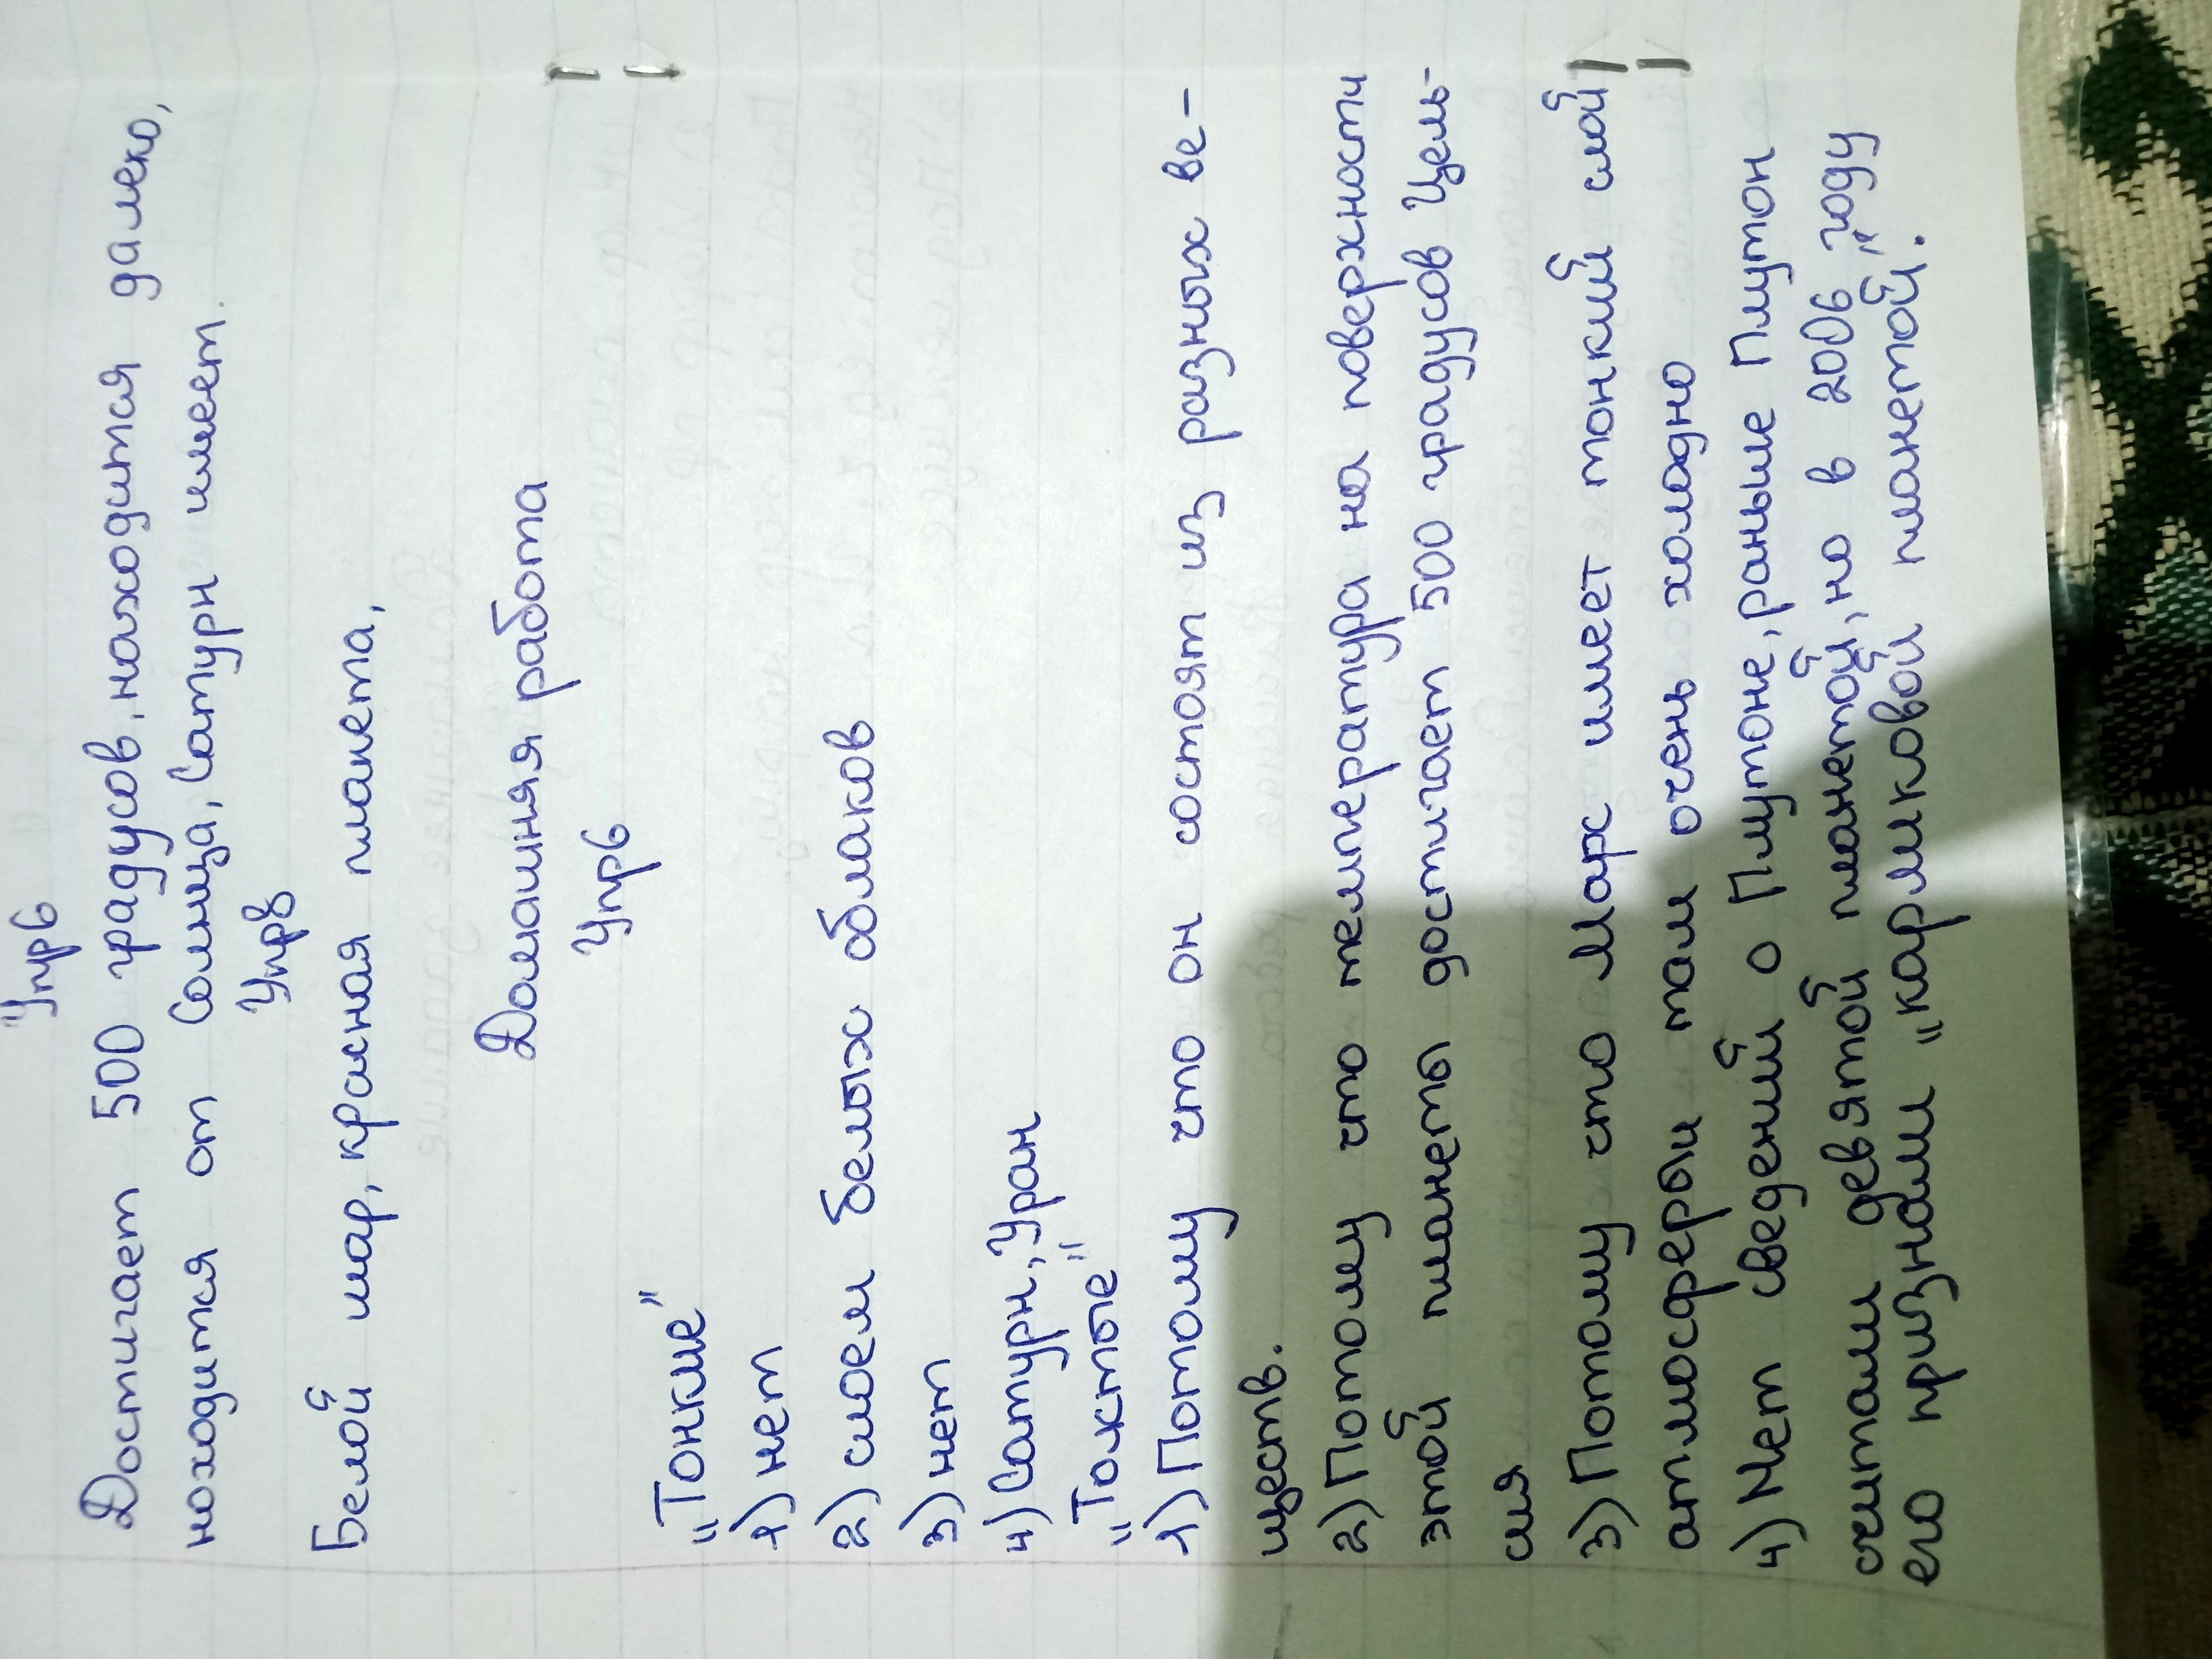 Упр6
Достигает 500 градусов, находится далеко,
находится от Солнца, Сатурн имеет.
Упр8
Белой шар, красная планета,
Домашняя работа
Упр6
"Тонкие"
1) нет
2) слоем белых облаков
3) нет
4) Сатурн, Уран
"Толстые"
1) Потому что он состоят из разных ве-
ществ.
2) Потому что температура на поверхности
этой планеты достигает 500 градусов Цель-
сия
3) Потому что Марс имеет тонкий слой
атмосферы там очень холодно
4) Нет сведений о Плутоне, раньше Плутон
считали девятой планетой, но в 2006 году
его признали „карликовой планетой".